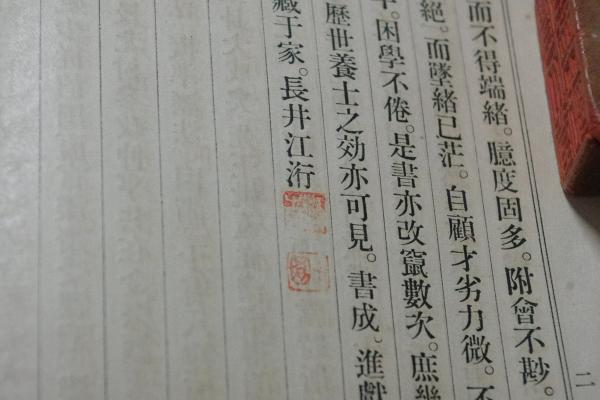 而不得端緒。臆度固多。附會不尠。
絕。而墜緒已茫。自顧才劣力微。不
困學不倦。是書亦改竄數次。庶幾
歷世養士之効亦可見。書成。進獻
藏于家。長井江衍
二